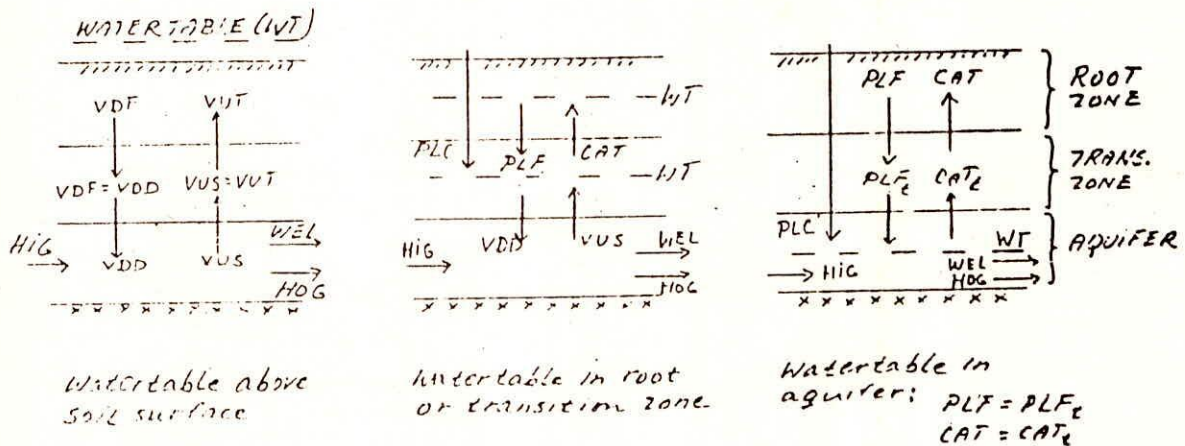 WATERTABLE (WT)
VDF VUT
VDF = VDD VUS = VUT
HiG WEL
VDD VUS
HOG
Watertable above
soil surface
WT
PLC PLF CAT
WT
HiG VDD VUS WEL
HOG
Watertable in root
or transition zone.
PLF CAT
ROOT
ZONE
PLFt CATt
TRANS.
ZONE
PLC
AQUIFER
WT
HiG WEL
HOG
Watertable in
aquifer: PLF = PLFt
CAT = CATt